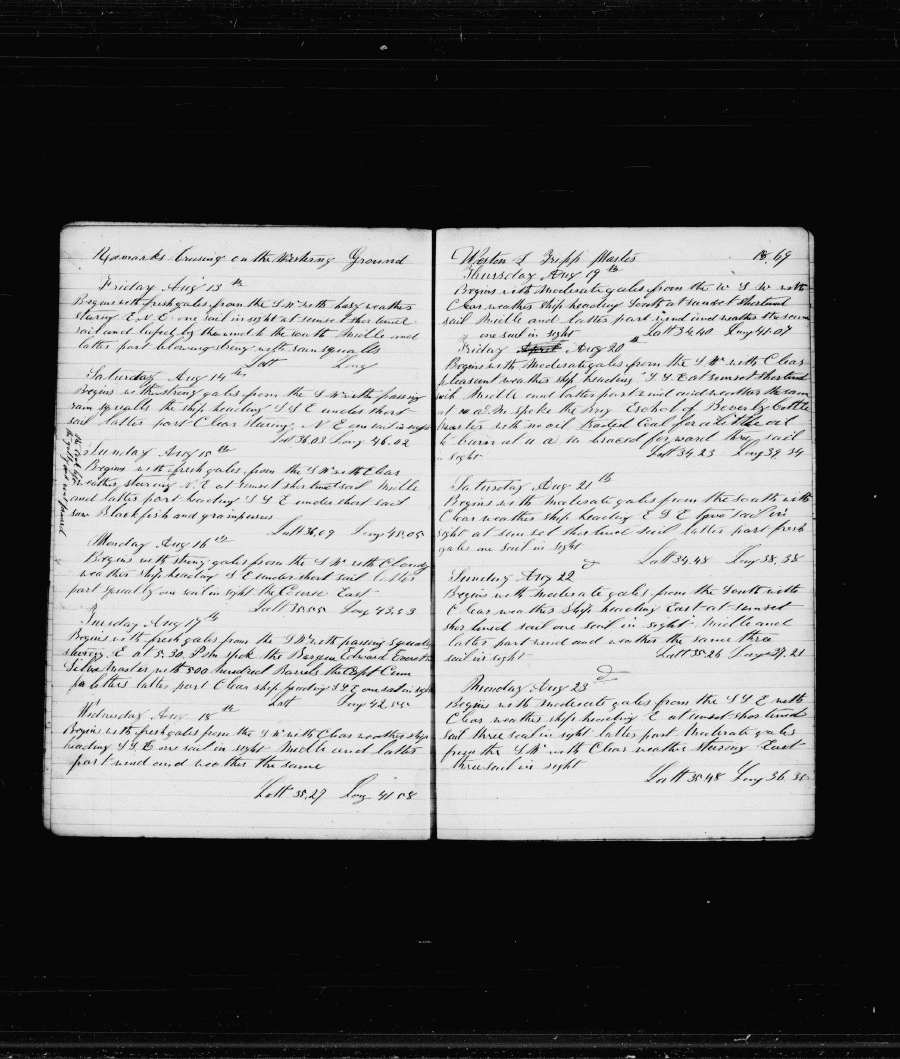 Remarks Cruising on the Western Ground
Friday Aug 13th
Begins with fresh gales from the S W with hazy weather
staring E N E one sail in sight at sunset shortened
sail and lufed by the wind to the south Middle and
latter part blowing strong with rain squalls
Latt Long
Saturday Aug 14th
Begins with strong gales from the S W with passing
rain squalls the ship heading S S E under short
sail latter part Clear staring N E one sail in sight
Latt 36.03 Long 46.02
Sunday Aug 15th
Begins with fresh gales from the S W with Clear
weather staring N E at sunset shortened sail Middle
and latter part heading S S E under short sail
saw Blackfish and grampuses
Latt 36.09 Long 45.05
Monday Aug 16th
Begins with strong gales from the S W with Cloudy
weather ship heading S E under short sail latter
part squally one sail in sight the Course East
Latt 35.55 Long 43.53
Tuesday Aug 17th
Begins with fresh gales from the S W with passing squalls
staring E at 5.30 P M spok the Barque Edward Everett
Silva Master with 500 hundred Barrels the Capt Cum
for letters latter part Clear ship heading S S E one sail in sight
Latt Long 42.55
Wednesday Aug 18th
Begins with fresh gales from the S W with Clear weather ship
heading S S E one sail in sight Middle and latter
part wind and weather the same
Latt 35.27 Long 41.58
Weston S Tripp Master 1869
Thursday Aug 19th
Begins with Moderate gales from the W S W with
Clear weather ship heading South at sunset shortened
sail Middle and latter part wind and weather the same
one sail in sight Latt 34.40 Long 41.07
Friday Aug 20th
Begins with Moderate gales from the S W with Clear
pleasant weather ship heading S S E at sunset shortened
sail Middle and latter part wind and weather the same
at A M spoke the Brig Eschol of Beverly Cottle
Master with no oil Traded Coal for oil
to burn at braced forward three sail
in sight Latt 34.23 Long 39.34
Saturday Aug 21th
Begins with Moderate gales from the south with
Clear weather ship heading E S E two sail in
sight at sunset shortened sail latter part fresh
gales one sail in sight
Latt 34.48 Long 38.38
Sunday Aug 22d
Begins with Moderate gales from the South with
Clear weather Ship heading East at sunset
shortened sail one sail in sight Middle and
latter part wind and weather the same three
sail in sight Latt 35.26 Long 37.21
Monday Aug 23d
Begins with Moderate gales from the S S E with
Clear weather ship heading E at sunset shortened
sail three sail in sight latter part Moderate gales
from the S W with Clear weather staring East
three sail in sight
Latt 35.48 Long 36.35